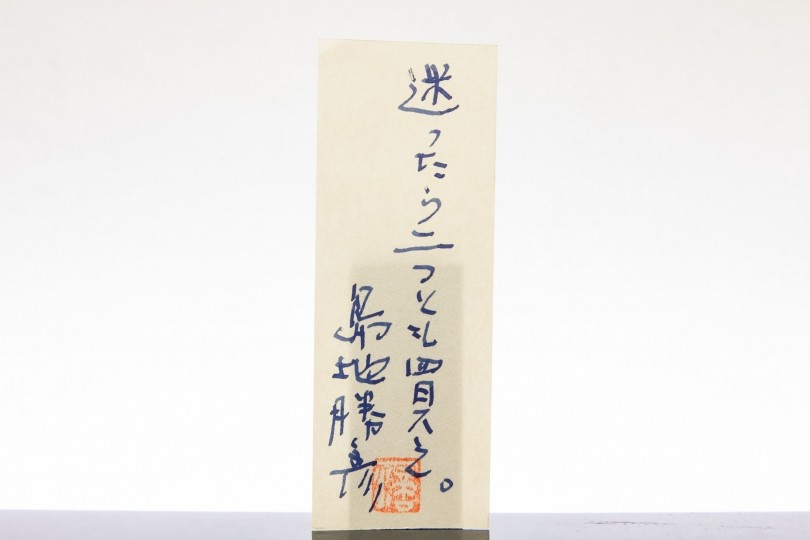 迷ったら二つとも買え。
島地勝彦